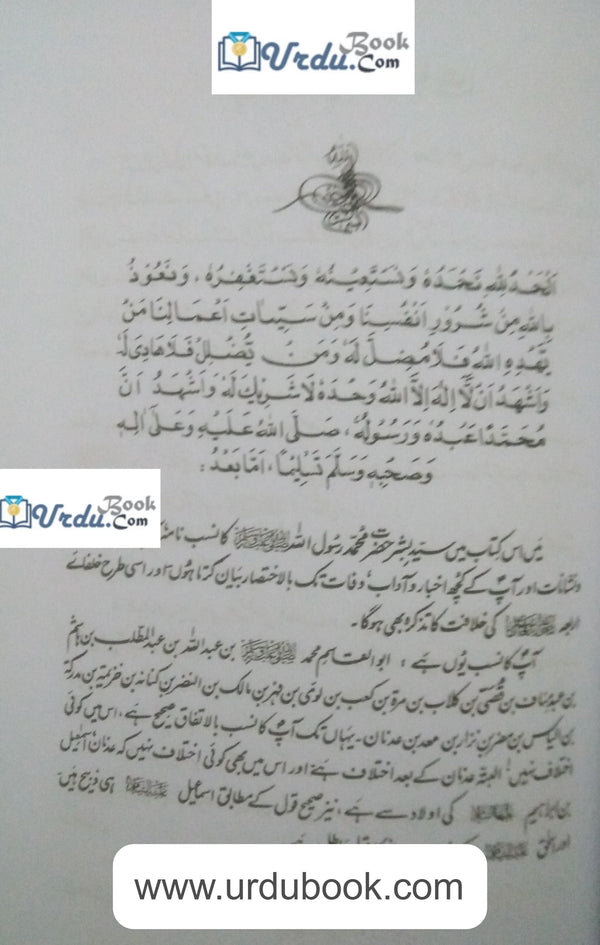 Urdu Book.Com
اَلْحَمْدُ لِلّٰهِ نَحْمَدُهٗ وَنَسْتَعِيْنُهٗ وَنَسْتَغْفِرُهٗ، وَنَعُوْذُ
بِاللّٰهِ مِنْ شُرُوْرِ اَنْفُسِنَا وَمِنْ سَيِّئَاتِ اَعْمَالِنَا مَنْ
يَّهْدِهِ اللّٰهُ فَلَا مُضِلَّ لَهٗ وَمَنْ يُّضْلِلْ فَلَا هَادِىَ لَهٗ
وَاَشْهَدُ اَنْ لَّا اِلٰهَ اِلَّا اللّٰهُ وَحْدَهٗ لَا شَرِيْكَ لَهٗ وَاَشْهَدُ اَنَّ
مُحَمَّدًا عَبْدُهٗ وَرَسُوْلُهٗ، صَلَّى اللّٰهُ عَلَيْهِ وَعَلٰى اٰلِهٖ
وَصَحْبِهٖ وَسَلَّمَ تَسْلِيْمًا، اَمَّا بَعْدُ:
Urdu Book.Com
میں اس کتاب میں سید بشر حضرت محمد رسول اللہ ﷺ کا نسب نامہ
ونشانات اور آپؐ کے کچھ اخبار و آداب، وفات تک بالاختصار بیان کرتا ہوں اور اسی طرح خلفائے
اربعہ کی خلافت کا تذکرہ بھی ہوگا۔
آپؐ کا نسب یوں ہے: ابوالقاسم محمد ﷺ بن عبداللہ بن عبدالمطلب بن ہاشم
بن عبدمناف بن قصی بن کلاب بن مرۃ بن کعب بن لوئی بن فہر بن مالک بن النضر بن کنانہ بن خزیمۃ بن مدرکۃ
بن الیاس بن مضر بن نزار بن معد بن عدنان۔ یہاں تک آپؐ کا نسب بالاتفاق صحیح ہے، اس میں کوئی
اختلاف نہیں، البتہ عدنان کے بعد اختلاف ہے، اور اس میں بھی کوئی اختلاف نہیں کہ عدنان اسمٰعیل
بن ابراہیم کی اولاد سے ہے، نیز صحیح قول کے مطابق اسماعیل ہی ذبیح ہیں
اور اسحٰق
www.urdubook.com